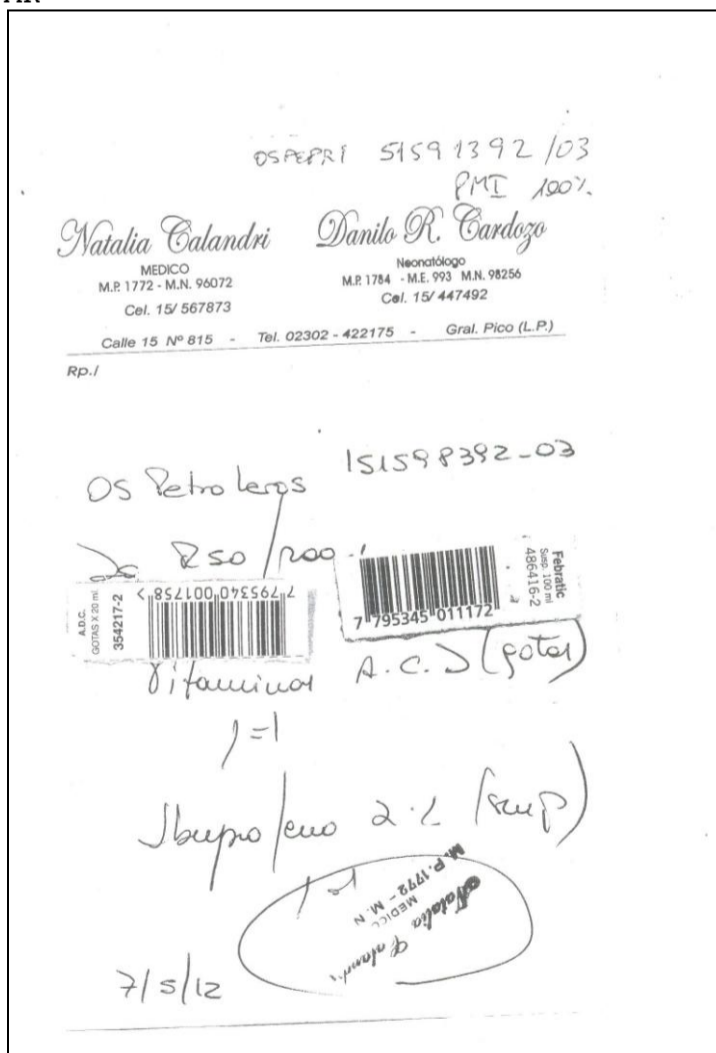 OSPEPRI 51591392/03
PMI 100%
Natalia Calandri
MEDICO
M.P. 1772 - M.N. 96072
Cel. 15/ 567873
Danilo R. Cardozo
Neonatólogo
M.P. 1784 - M.E. 993 M.N. 98256
Cel. 15/ 447492
Calle 15 Nº 815 - Tel. 02302 - 422175 - Gral. Pico (L.P.)
Rp./
OS Petroleros 151598392-03
A.D.C.
GOTAS X 20 ml
354217-2
7 795340 001758 >
Febratic
Susp. 100 ml
486416-2
7 795345 011172
Vitaminas A.C.D (gotas)
1=1
Ibuprofeno 2% (susp)
Natalia Calandri
MEDICO
M.P. 1772 - M.N.
7/5/12